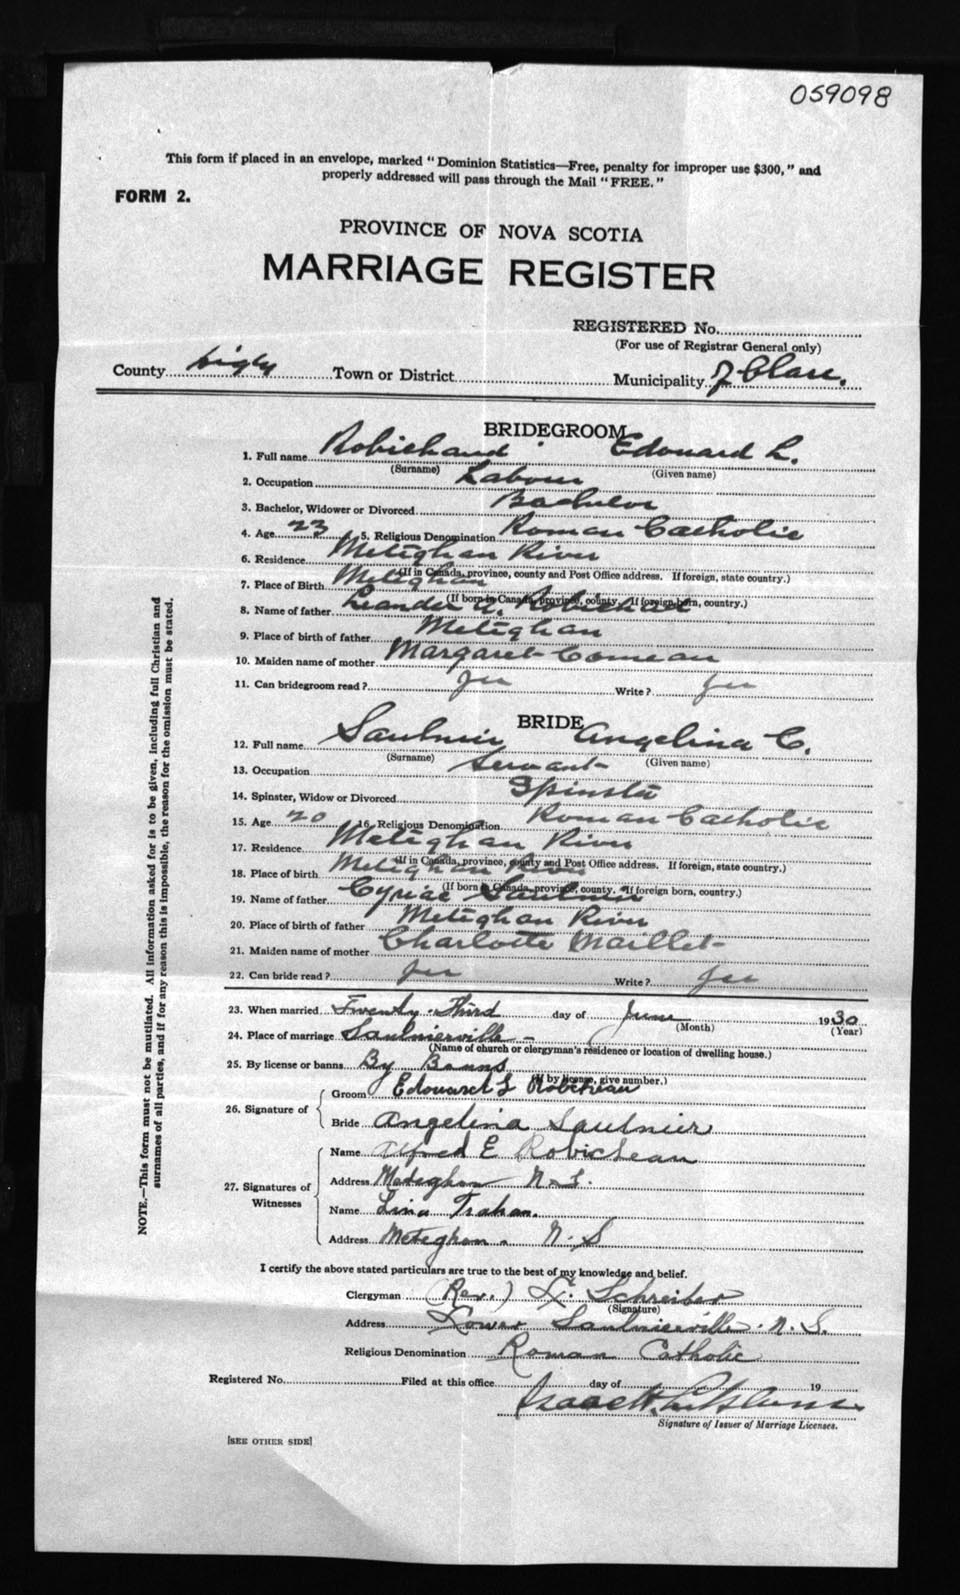 059098
This form if placed in an envelope, marked "Dominion Statistics—Free, penalty for improper use $300," and
properly addressed will pass through the Mail "FREE."
FORM 2.
PROVINCE OF NOVA SCOTIA
MARRIAGE REGISTER
REGISTERED No.
(For use of Registrar General only)
County Digby Town or District Municipality of Clare.
BRIDEGROOM
1. Full name Robichaud Edouard L.
(Surname) (Given name)
2. Occupation Labour
3. Bachelor, Widower or Divorced Bachelor
4. Age 23 5. Religious Denomination Roman Catholic
6. Residence Meteghan River
(If in Canada, province, county and Post Office address. If foreign, state country.)
7. Place of Birth Meteghan
(If born in Canada, province, county. If foreign born, country.)
8. Name of father Leander A. Robichau
9. Place of birth of father Meteghan
10. Maiden name of mother Margaret Comeau
11. Can bridegroom read? Yes Write? Yes
BRIDE
12. Full name Saulnier Angelina C.
(Surname) (Given name)
13. Occupation Servant
14. Spinster, Widow or Divorced Spinster
15. Age 20 16. Religious Denomination Roman Catholic
17. Residence Meteghan River
(If in Canada, province, county and Post Office address. If foreign, state country.)
18. Place of birth Meteghan River
(If born in Canada, province, county. If foreign born, country.)
19. Name of father Cyriac Saulnier
20. Place of birth of father Meteghan River
21. Maiden name of mother Charlotte Maillet
22. Can bride read? Yes Write? Yes
23. When married Twenty-Third day of June 1930
(Month) (Year)
24. Place of marriage Saulnierville -
(Name of church or clergyman's residence or location of dwelling house.)
25. By license or banns By Banns
(If by license, give number.)
26. Signature of
Groom Edouard L Robicheau
Bride Angelina Saulnier
27. Signatures of Witnesses
Name Alfred E Robicheau
Address Meteghan N.S.
Name Lina Trahan.
Address Meteghan. N.S
I certify the above stated particulars are true to the best of my knowledge and belief.
Clergyman (Rev.) L. Schreiber
(Signature)
Address Lower Saulnierville. N.S.
Religious Denomination Roman Catholic
Registered No. Filed at this office day of 19
Signature of Issuer of Marriage Licenses.
[SEE OTHER SIDE]
NOTE.—This form must not be mutilated. All information asked for is to be given, including full Christian and
surnames of all parties, and if for any reason this is impossible, the reason for the omission must be stated.